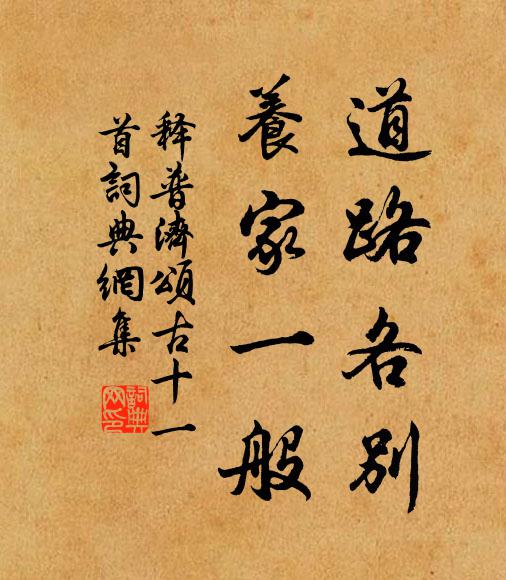 道路各別
養家一般
释普濟頌古十一
首詞典網集
詞典
网印